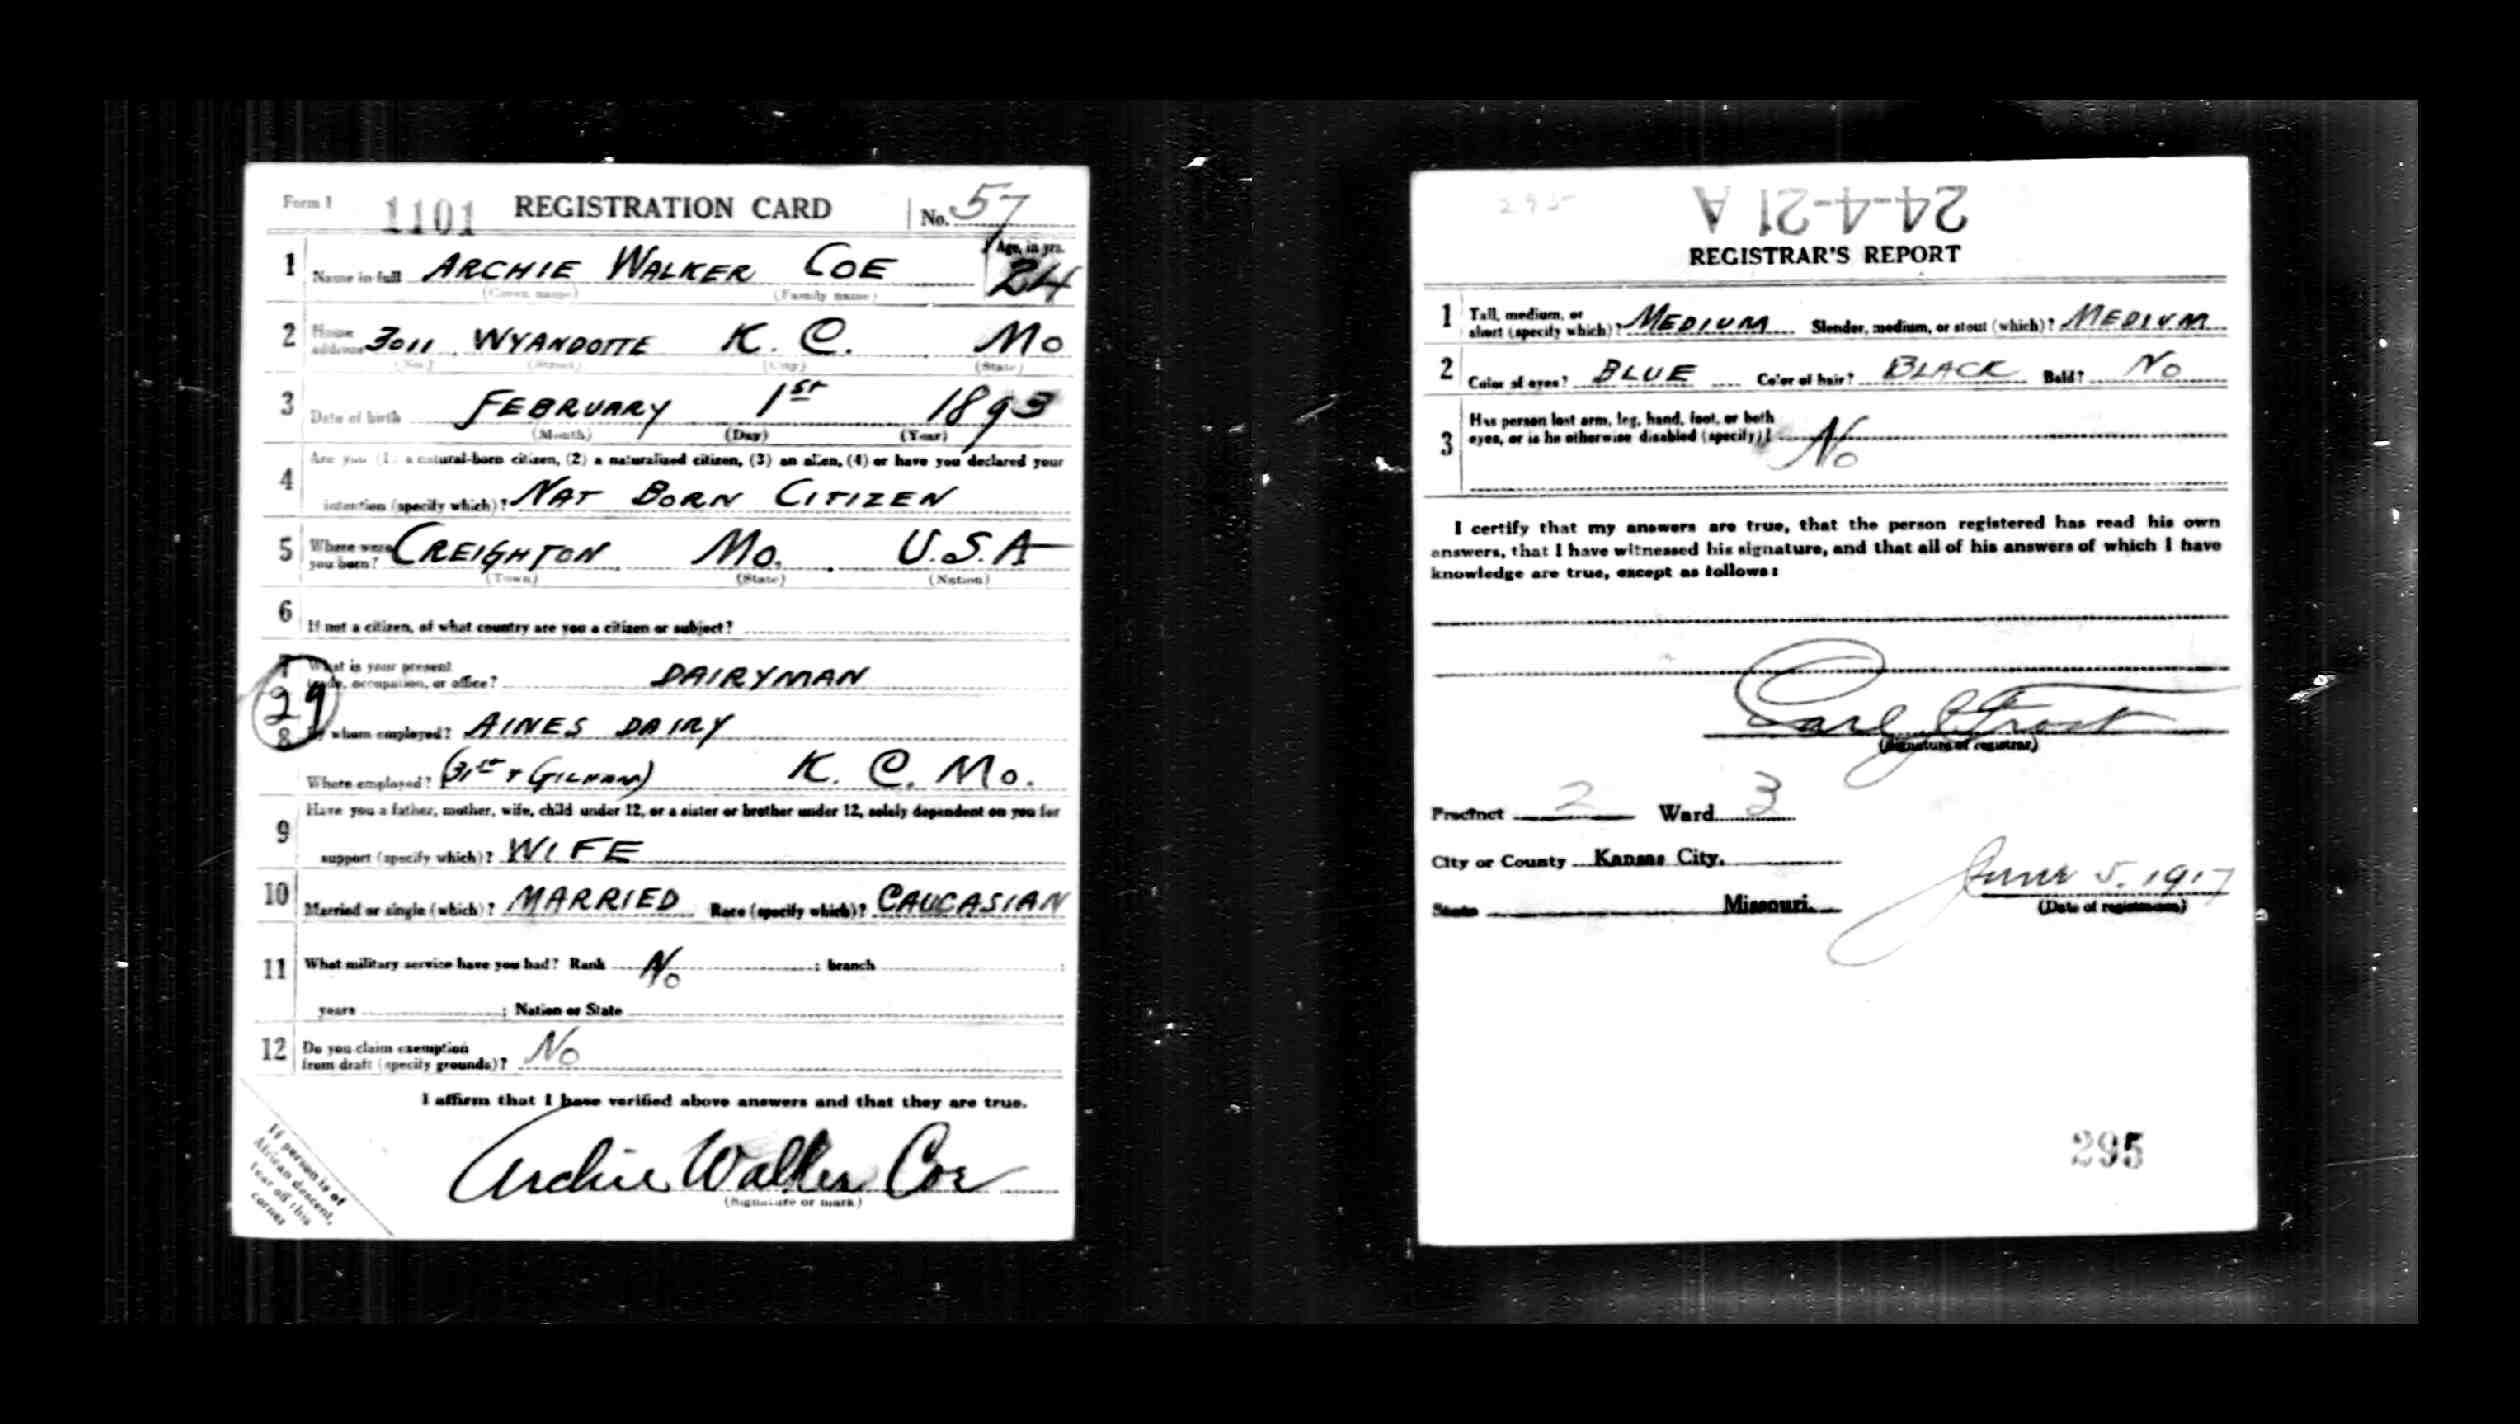 Form 1 1101 REGISTRATION CARD No. 57
1 Name in full ARCHIE WALKER COE Age, in yrs. 24
(Given name) (Family name)
2 Home address 3011 WYANDOTTE K. C. Mo
(No.) (Street) (City) (State)
3 Date of birth FEBRUARY 1st 1893
(Month) (Day) (Year)
4 Are you (1) a natural-born citizen, (2) a naturalized citizen, (3) an alien, (4) or have you declared your
intention (specify which)? NAT BORN CITIZEN
5 Where were you born? CREIGHTON Mo. U.S.A
(Town) (State) (Nation)
6 If not a citizen, of what country are you a citizen or subject?
7 What is your present trade, occupation, or office? DAIRYMAN
29
8 By whom employed? AINES DAIRY
Where employed? (31st & GILHAM) K. C. Mo.
9 Have you a father, mother, wife, child under 12, or a sister or brother under 12, solely dependent on you for
support (specify which)? WIFE
10 Married or single (which)? MARRIED Race (specify which)? CAUCASIAN
11 What military service have you had? Rank No ; branch ;
years ; Nation or State
12 Do you claim exemption from draft (specify grounds)? No
I affirm that I have verified above answers and that they are true.
Archie Walker Coe
(Signature or mark)
If person is of
African descent,
tear off this
corner
295
24-4-21 A
REGISTRAR'S REPORT
1 Tall, medium, or short (specify which)? MEDIUM Slender, medium, or stout (which)? MEDIUM
2 Color of eyes? BLUE Color of hair? BLACK Bald? No
3 Has person lost arm, leg, hand, foot, or both
eyes, or is he otherwise disabled (specify)? No
I certify that my answers are true, that the person registered has read his own
answers, that I have witnessed his signature, and that all of his answers of which I have
knowledge are true, except as follows:
(Signature of registrar)
Precinct 2 Ward 3
City or County Kansas City,
State Missouri. June 5, 1917
(Date of registration)
295